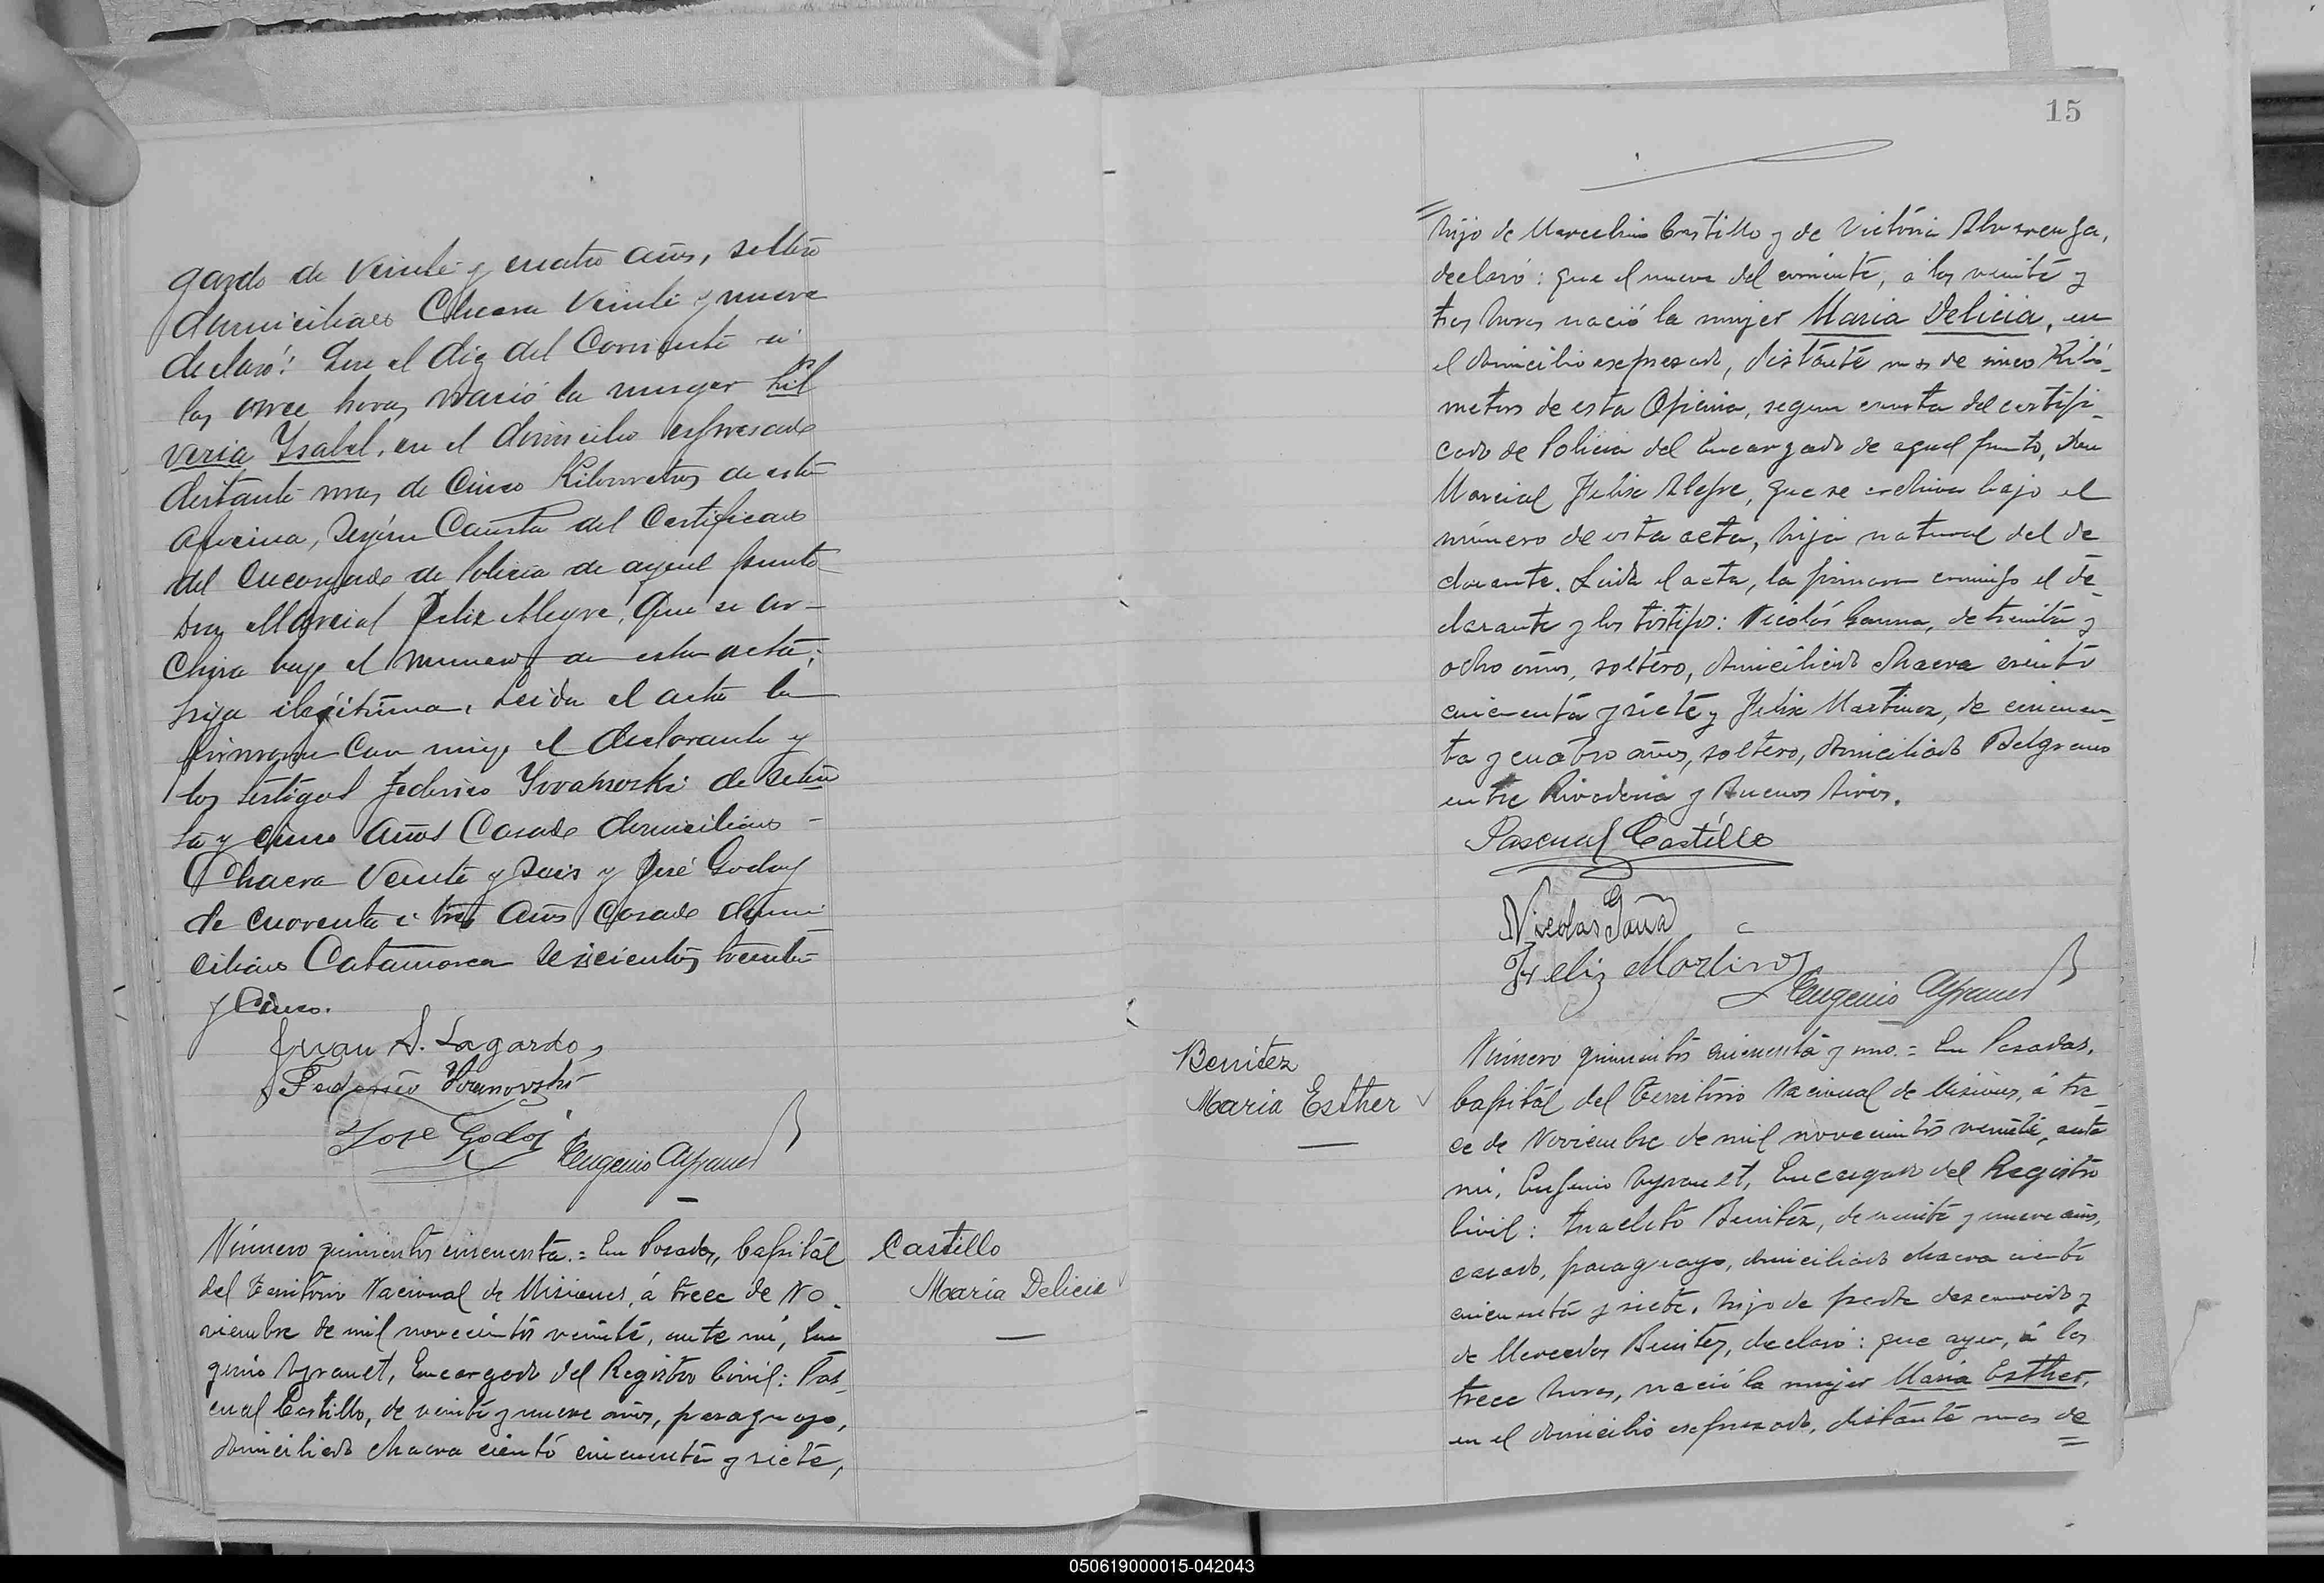 gardo de veinte y cuatro años, soltero
domiciliado Chacra Veinte y nueve
declaró: Que el diez del Corriente a
las once horas nació la mujer Sil
veria Ysabel, en el domicilio espresado
distante mas de Cinco Kilometros de esta
oficina, según Consta del Certificado
del Encargado de Policia de aquel punto
Don Marcial Felix Alegre, que se ar-
chiva bajo el numero de esta acta;
hija ilegitima. Leida el acta la
firmaron con migo el declarante y
los testigos Federico Yvanoski de
ta y cinco años Casado domiciliado
Chacra Veinte y seis y José Godoy
de cuarenta i tres años Casado domi
ciliado Catamarca Seiscientos treinta
y Cinco.
Juan S. Lagardo
Federico Yvanovski
Jose Godoy
Eugenio Ayrault
Número quinientos cincuenta.= En Posadas, Capital
del Territorio Nacional de Misiones, á trece de No-
viembre de mil novecientos veinte, ante mi, Eu
genio Ayrault, Encargado del Registro Civil: Pas-
cual Castillo, de veinte y nueve años, paraguayo,
domiciliado chacra ciento cincuenta y siete,
Castillo
Maria Delicia
15
hijo de Marcelino Castillo y de Victoria Alvarenga,
declaró: que el nueve del corriente, a las veinte y
tres horas nació la mujer Maria Delicia, en
el domicilio expresado, distante mas de cinco Kiló-
metros de esta Oficina, segun consta del certifi-
cado de Policia del Encargado de aquel punto, Don
Marcial Felix Alegre, que se archiva bajo el
número de esta acta, hija natural del de
clarante. Leida el acta, la firmaron conmigo el de-
clarante y los testigos: Nicolás Gauna, de treinta y
ocho años, soltero, domiciliado chacra ciento
cincuenta y siete y Felix Martinez, de cincuen-
ta y cuatro años, soltero, domiciliado Belgrano
entre Rivadavia y Buenos Aires.
Pascual Castillo
Nicolas Gauna
Feliz Martinez
Eugenio Ayrault
Benitez
Maria Esther
Número quinientos cincuenta y uno.= En Posadas,
Capital del Territorio Nacional de Misiones, á tre-
ce de Noviembre de mil novecientos veinte, ante
mi, Eugenio Ayrault, Encargado del Registro
Civil: Anacleto Benitez, de veinte y nueve años,
casado, paraguayo, domiciliado chacra ciento
cincuenta y siete, hijo de padre desconocido y
de Mercedes Benitez, declaró: que ayer, á las
trece horas, nació la mujer Maria Esther,
en el domicilio expresado, distante mas de
050619000015-042043